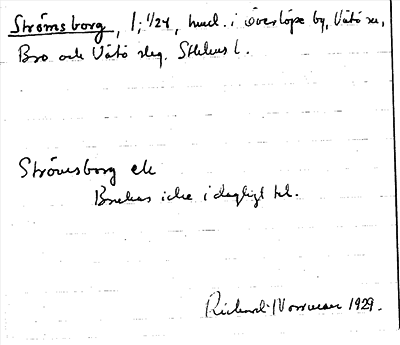 Strömsborg, 1; 1/24, hmd. i Överlöpe by, Vätö sn,
Bro och Vätö slg. Sthlms l.
Strömsborg ek
Brukas icke i dagligt tal.
Rickard 1929.